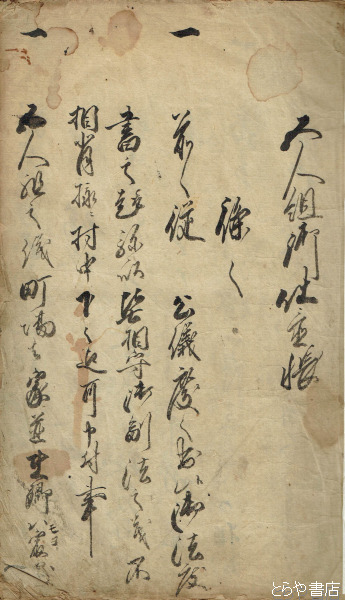 五人組御仕置帳
條々
一 前々従 公儀度々被 仰出御法度
書之趣弥以堅相守御制法之義不
相背様ニ村中下々迄可申付事
一 五人組之儀町場ハ家並在郷ハ最寄
とらや書店